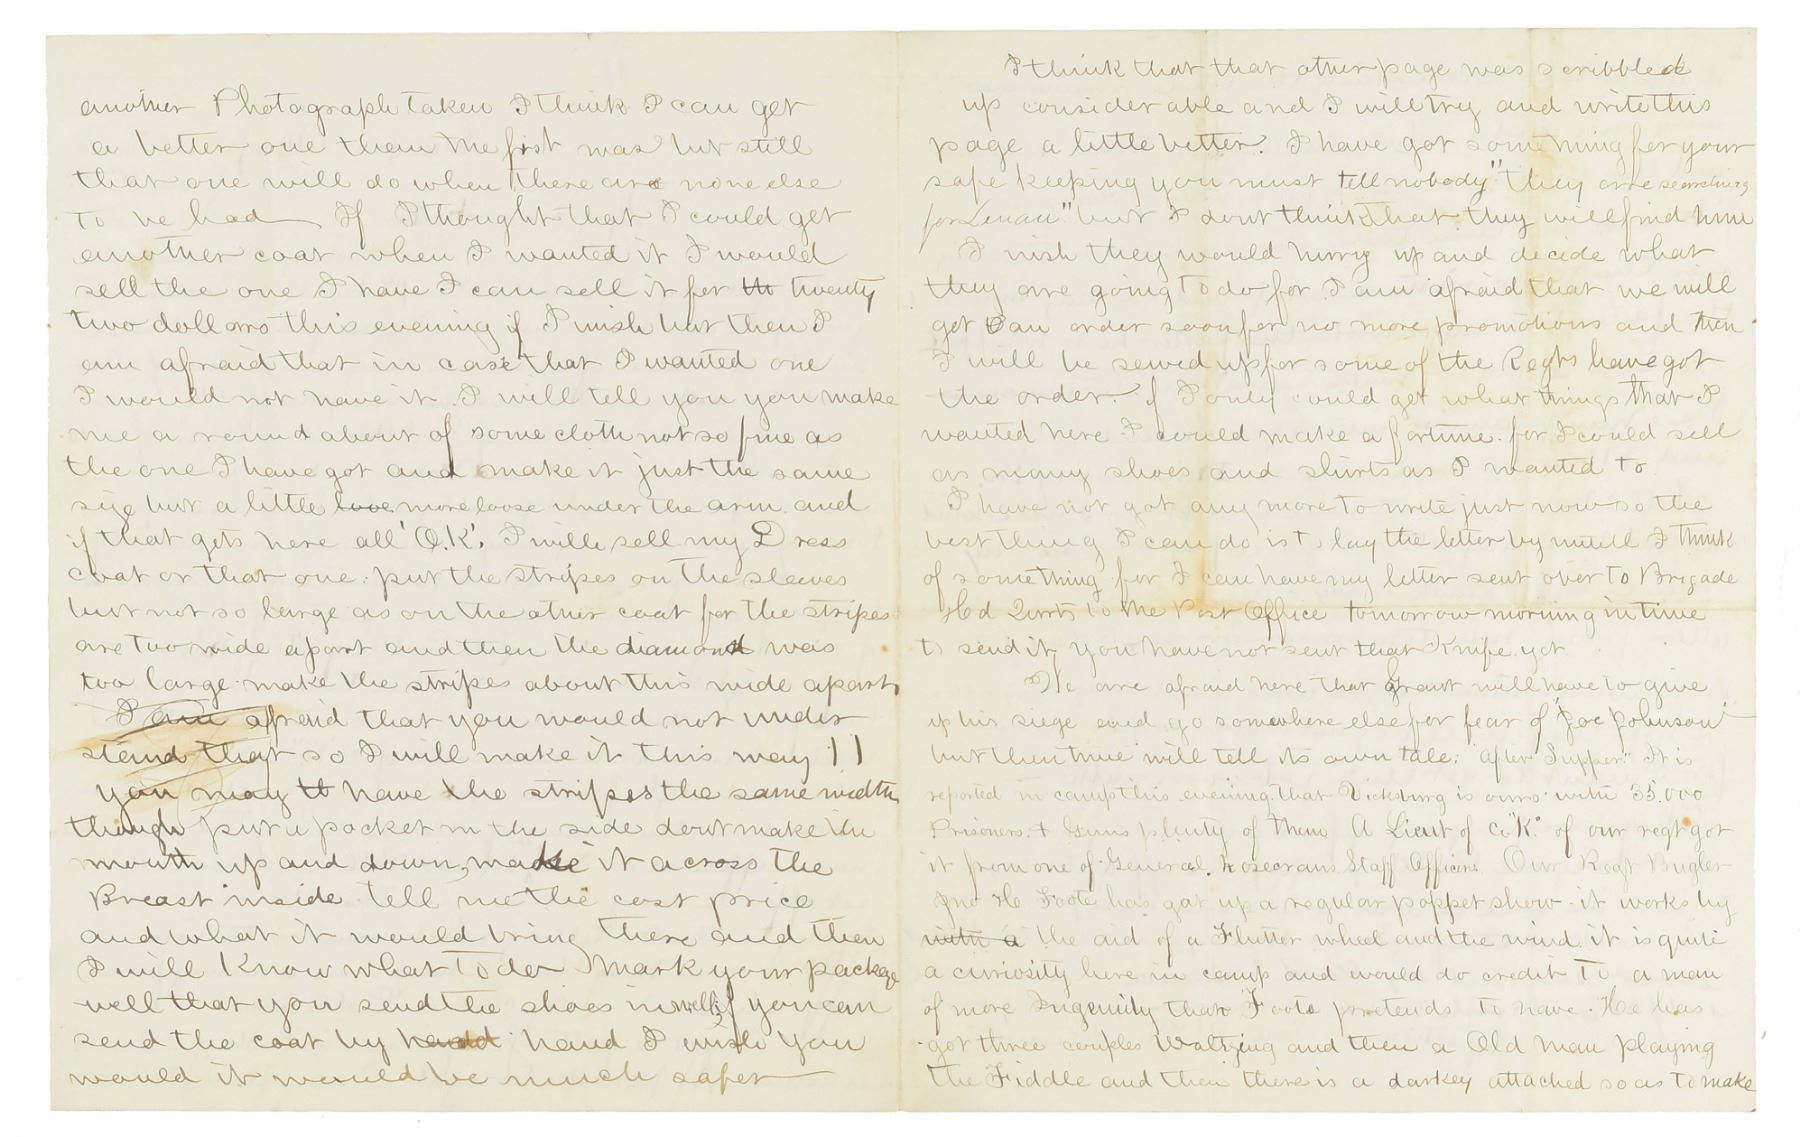 another Photograph taken I think I can get
a better one then the first was but still
that one will do when there are none else
to be had If I thought that I could get
another coat when I wanted it I would
sell the one I have I can sell it for th twenty
two dollars this evening if I wish but then I
am afraid that in case that I wanted one
I would not have it. I will tell you you make
me a round about of some cloth not so fine as
the one I have got and make it just the same
size but a little more loose under the arm and
if that gets here all 'O.K.' I will sell my Dress
coat or that one. put the stripes on the sleeves
but not so large as on the other coat for the stripes
are too wide apart and then the diamond was
too large make the stripes about this wide apart,
I am afraid that you would not under
stand that so I will make it this way | |
you may tt have the stripes the same width
though put a pocket in the side dont make the
mouth up and down, make it across the
Breast inside tell me the cost price
and what it would bring there and then
I will Know what to do Mark your package
well that you send the shoes in well, if you can
send the coat by hand I wish you
would it would be much safer
I think that that other page was scribbled
up considerable and I will try and write this
page a little better. I have got something for your
safe keeping you must tell nobody "they are searching
for" but I dont think that they will find him
I wish they would hurry up and decide what
they are going to do for I am afraid that we will
get an order soon for no more promotions and then
I will be sewed up for some of the Regts have got
the order. if I only could get what things that I
wanted here I could make a fortune. for I could sell
as many shoes and shirts as I wanted to
I have not got any more to write just now so the
best thing I can do is to lay the letter by untill I think
of something for I can have my letter sent over to Brigade
Hd Qurts to the Post Office tomorrow morning in time
to send it, you have not sent that Knife yet
We are afraid here that Grant will have to give
up his siege and go somewhere else for fear of 'Joe Johnson'
but then time will tell its own tale. "after Supper" It is
reported in camp this evening that Vicksburg is ours with 35.000
Prisoners & Guns plenty of them A Lieut of Co "K." of our regt got
it from one of General Rosecrans Staff Officers. Our Regt Bugler
Jno H Foote has got up a regular poppet show. it works by
with a the aid of a Flutter wheel and the wind it is quite
a curiosity here in camp and would do credit to a man
of more Ingenuity than Foote pretends to have. He has
got three couples Waltzing and then a Old man playing
the Fiddle and then there is a darkey attached so as to make